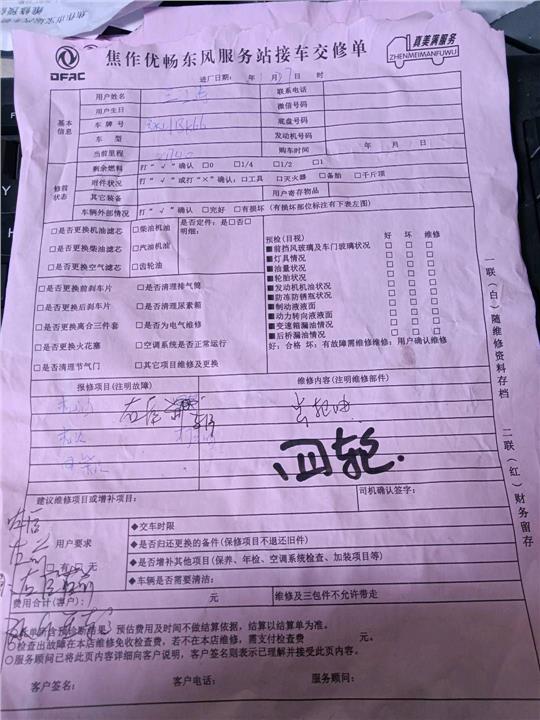 DFAC
焦作优畅东风服务站接车交修单
真美满服务
ZHENMEIMANFUWU
进厂日期: 年 月 7 日 时
基本信息
用户姓名 联系电话
用户生日 微信号码
车牌号 底盘号码
车型 发动机号码
当前里程 购车时间 年 月 日
修前状态
剩余燃料 打“√”确认 □0 □1/4 □1/2 □1
附件状况 打“√”或打“×”确认:□工具 □灭火器 □备胎 □千斤顶
其它装备 用户寄存物品
车辆外部情况 打“√”确认 □完好 □有损坏(有损坏部位标注有下表左图)
□是否更换机油滤芯 □柴油机油 是否定件:是□否□
□是否更换柴油滤芯 □汽油机油 明细:
□是否更换空气滤芯 □齿轮油
□是否更换前刹车片 □是否清理排气筒
□是否更换后刹车片 □是否清理尿素箱
□是否更换离合三件套 □是否为电气维修
□是否更换火花塞 □空调系统是否正常运行
□是否清理节气门 □其它项目维修及更换
预检(目视) 好 坏 维修
■前挡风玻璃及车门玻璃状况 □ □ □
■灯具情况 □ □ □
■油量状况 □ □ □
■轮胎状况 □ □ □
■发动机机油状况 □ □ □
■防冻防锈瓶状况 □ □ □
■制动液液面 □ □ □
■动力转向液液面 □ □ □
■变速箱漏油情况 □ □ □
■后桥漏油情况 □ □ □
好:合格 坏:有故障需维修维修:用户确认维修
一联(白)随维修资料存档
二联(红)财务留存
报修项目(注明故障) 维修内容(注明维修部件)
四轮.
建议维修项目或增补项目: 司机确认签字:
用户要求
□有 □无
◆交车时限
◆是否归还更换的备件(保修项目不退还旧件)
◆是否增补其他项目(保养、年检、空调系统检查、加装项目等)
◆车辆是否需要清洁:
费用合计(客户): 元 维修及三包件不允许带走
预估费用及时间不做结算依据,结算以结算单为准。
○检查出故障在本店维修免收检查费,若不在本店维修,需支付检查费 元。
○服务顾问已将此页内容详细向客户说明,客户签名则表示已理解并接受此页内容。
客户签名: 客户电话: 服务顾问: